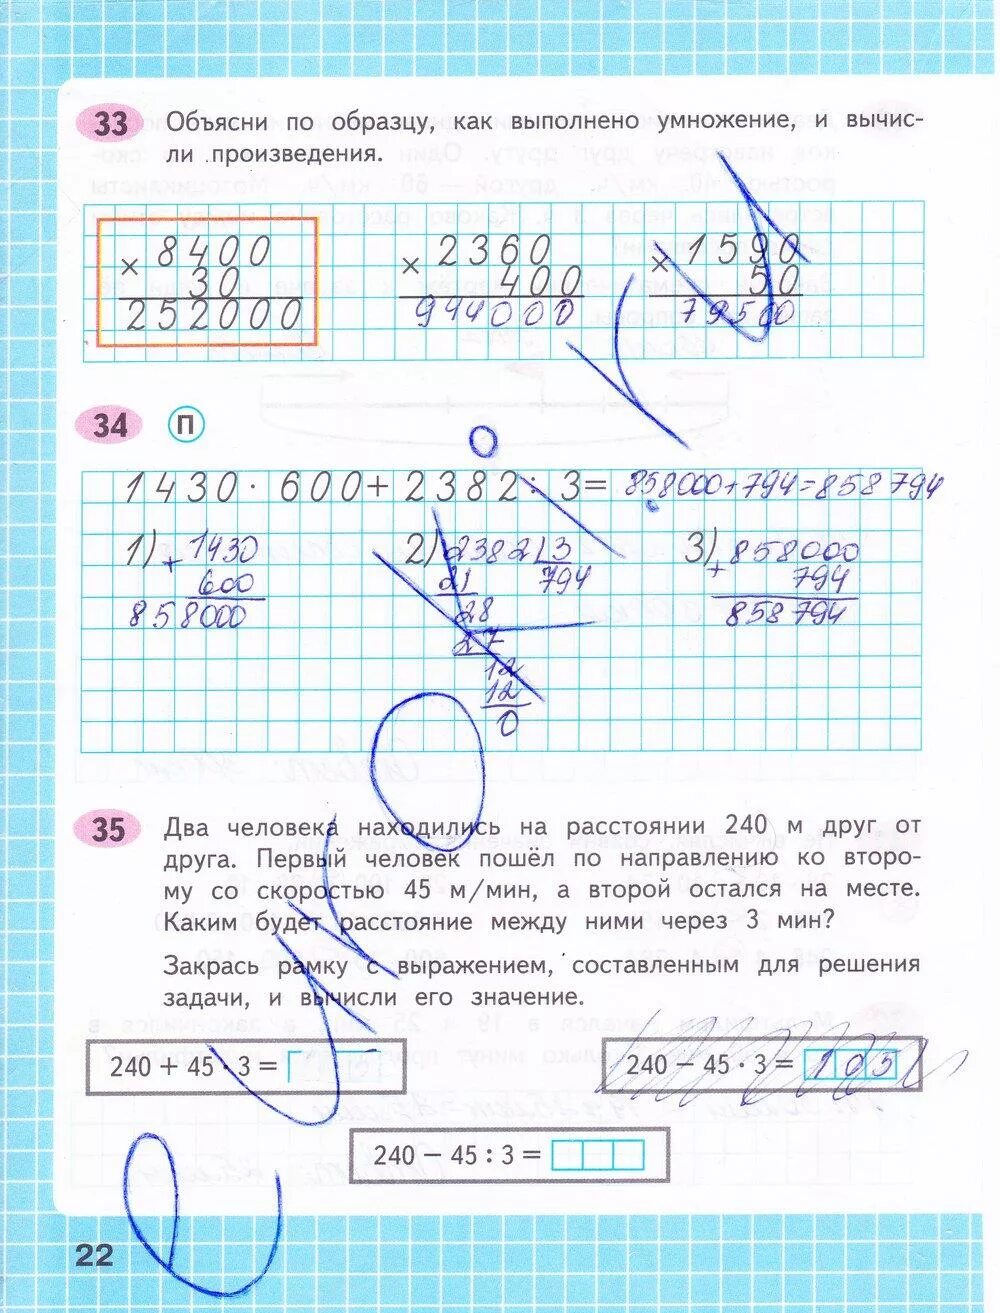 33 Объясни по образцу, как выполнено умножение, и вычис-
ли произведения.
× 8400
30
252000
× 2360
400
944000
× 1590
50
79500
34 П
1430 · 600 + 2382 : 3 = 858000+794=858794
1) + 1430
600
858000
2) 2382 3
21 794
28
27
12
12
0
3) + 858000
794
858794
35 Два человека находились на расстоянии 240 м друг от
друга. Первый человек пошёл по направлению ко второ-
му со скоростью 45 м/мин, а второй остался на месте.
Каким будет расстояние между ними через 3 мин?
Закрась рамку с выражением, составленным для решения
задачи, и вычисли его значение.
240 + 45 · 3 =
240 − 45 · 3 = 105
240 − 45 : 3 =
22